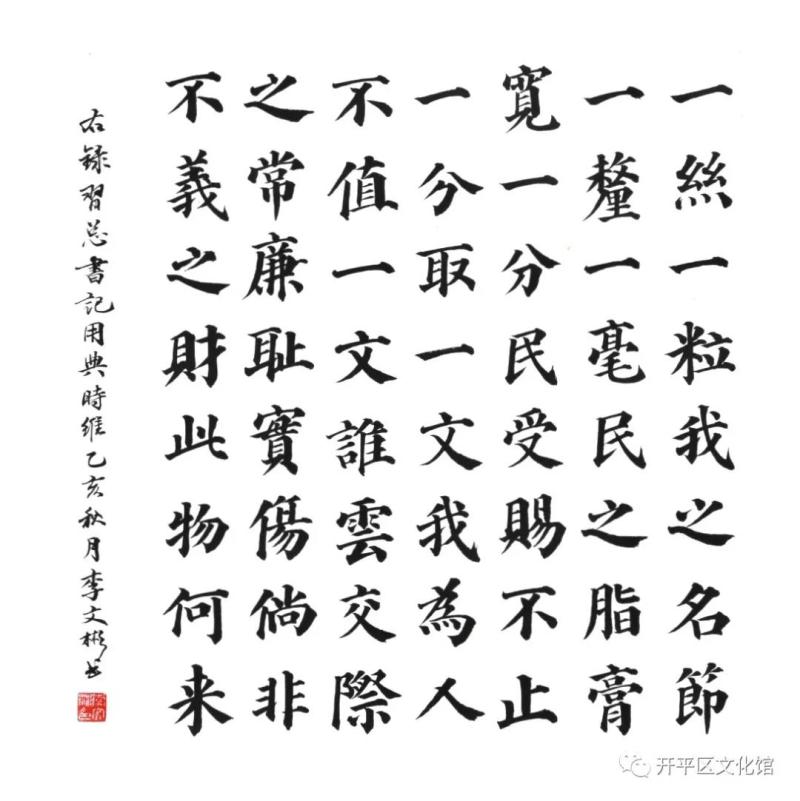 一絲一粒我之名節
一釐一毫民之脂膏
寬一分民受賜不止
一分取一文我為人
不值一文誰雲交際
之常廉耻實傷倘非
不義之財此物何来
右錄習总書記用典時維乙亥秋月李文彬书
开平区文化馆